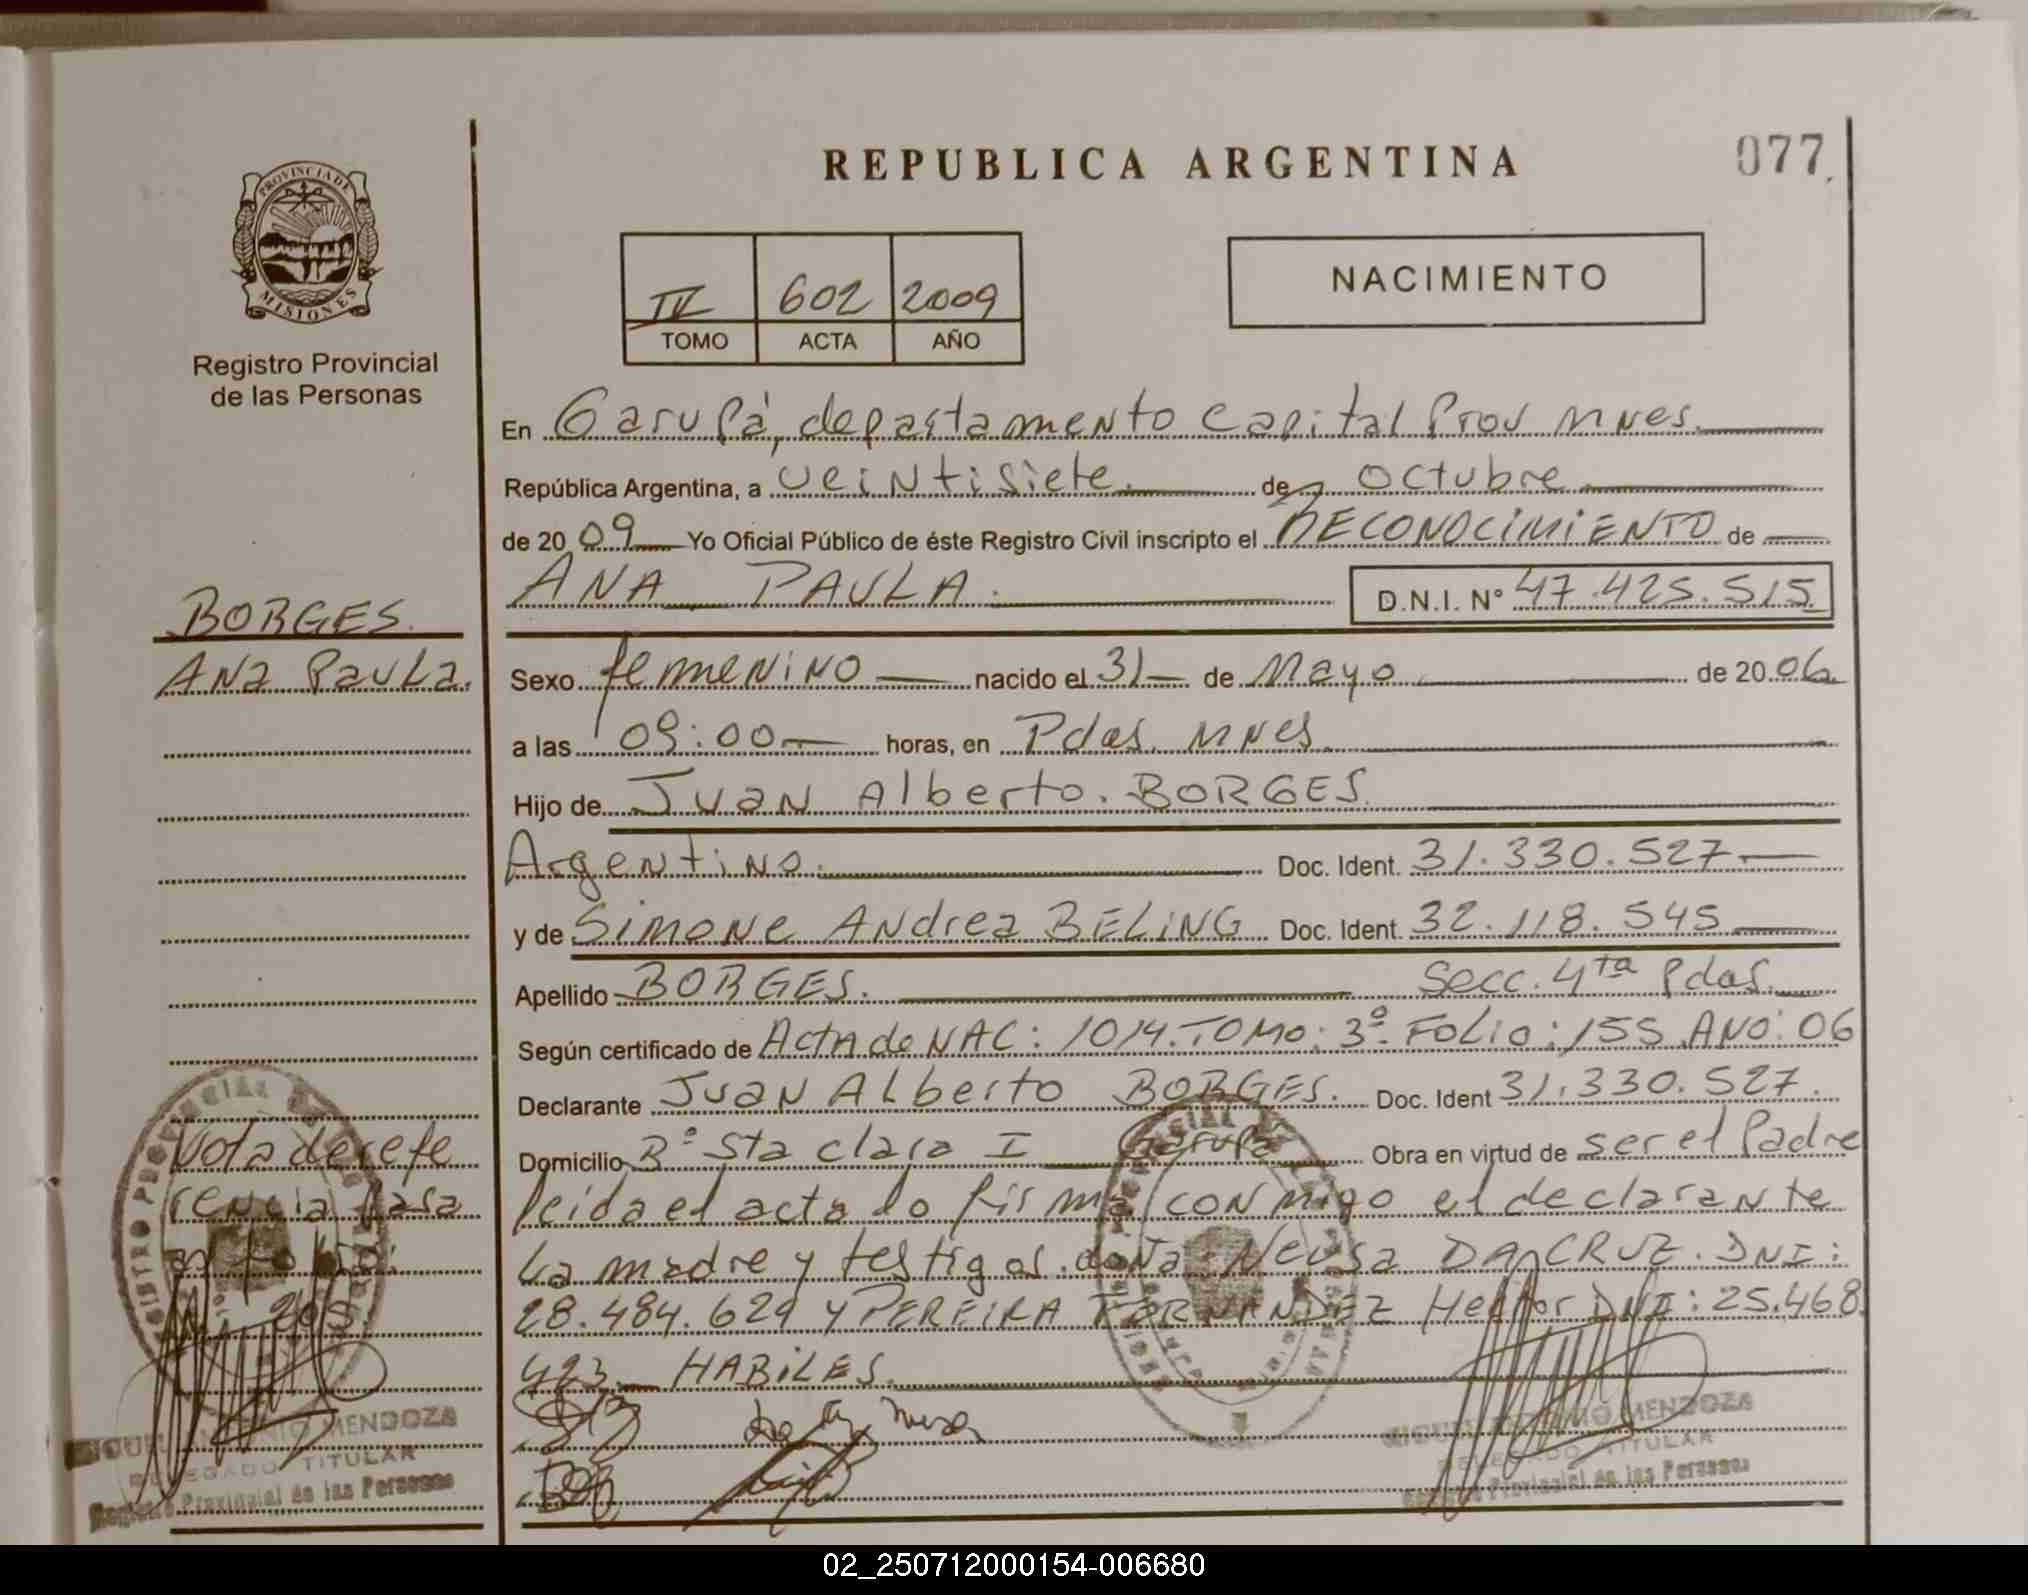 REPUBLICA ARGENTINA
077
PROVINCIA DE
MISIONES
Registro Provincial
de las Personas
IV 602 2009
TOMO ACTA AÑO
NACIMIENTO
En Garupá, departamento Capital Prov Mnes.
República Argentina, a veintisiete de octubre
de 20 09 Yo Oficial Público de éste Registro Civil inscripto el RECONOCIMIENTO de
ANA PAULA. D.N.I. N° 47.425.515
BORGES.
Ana Paula.
Sexo femenino nacido el 31 de Mayo de 20 06
a las 09:00 horas, en Pdas. Mnes.
Hijo de Juan Alberto. BORGES.
Argentino. Doc. Ident. 31.330.527
y de Simone Andrea BELING Doc. Ident. 32.118.545
Apellido BORGES. Secc. 4ta Pdas.
Según certificado de Acta de NAC: 1014. TOMO: 3º. FOLIO: 155. AÑO: 06
Declarante Juan Alberto BORGES. Doc. Ident 31.330.527.
Domicilio Bº Sta clara I Garupá Obra en virtud de ser el Padre
leida el acta lo firma conmigo el declarante
La madre y testigos. doña: Neusa DA CRUZ. DNI:
28.484.629 y PEREIRA FERNANDEZ Hector DNI: 25.468.
423. HABILES.
Nota de refe
rencia pasa
205
MENDOZA
DELEGADO TITULAR
Registro Provincial de las Personas
MIGUEL ANTONIO MENDOZA
DELEGADO TITULAR
Registro Provincial de las Personas
02_250712000154-006680